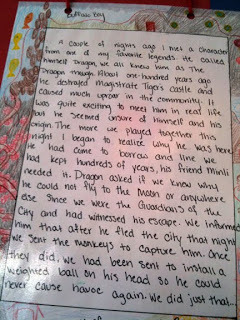 Buffalo Boy
A couple of nights ago I met a character
from one of my favorite legends. He called
himself Dragon, We all knew him as The
Dragon though. About one-hundred years ago
he destroyed Magistrate Tiger's castle and
caused much uproar in the community. It
was quite exciting to meet him in real life
but he seemed unsure of himself and his
origin. The more we played together this
night I began to realize why he was here.
He had come to borrow and line we
had kept hundreds of years, his friend Minli
needed it. Dragon asked if we knew why
he could not fly to the Moon or anywhere
else. Since we were the Guardian's of the
City and had witnessed his escape. We informed
him that after he fled the city that night
we sent the monkeys to capture him. Once
they did, we had been sent to install a
weighted ball on his head so he could
never cause havoc again. We did just that...